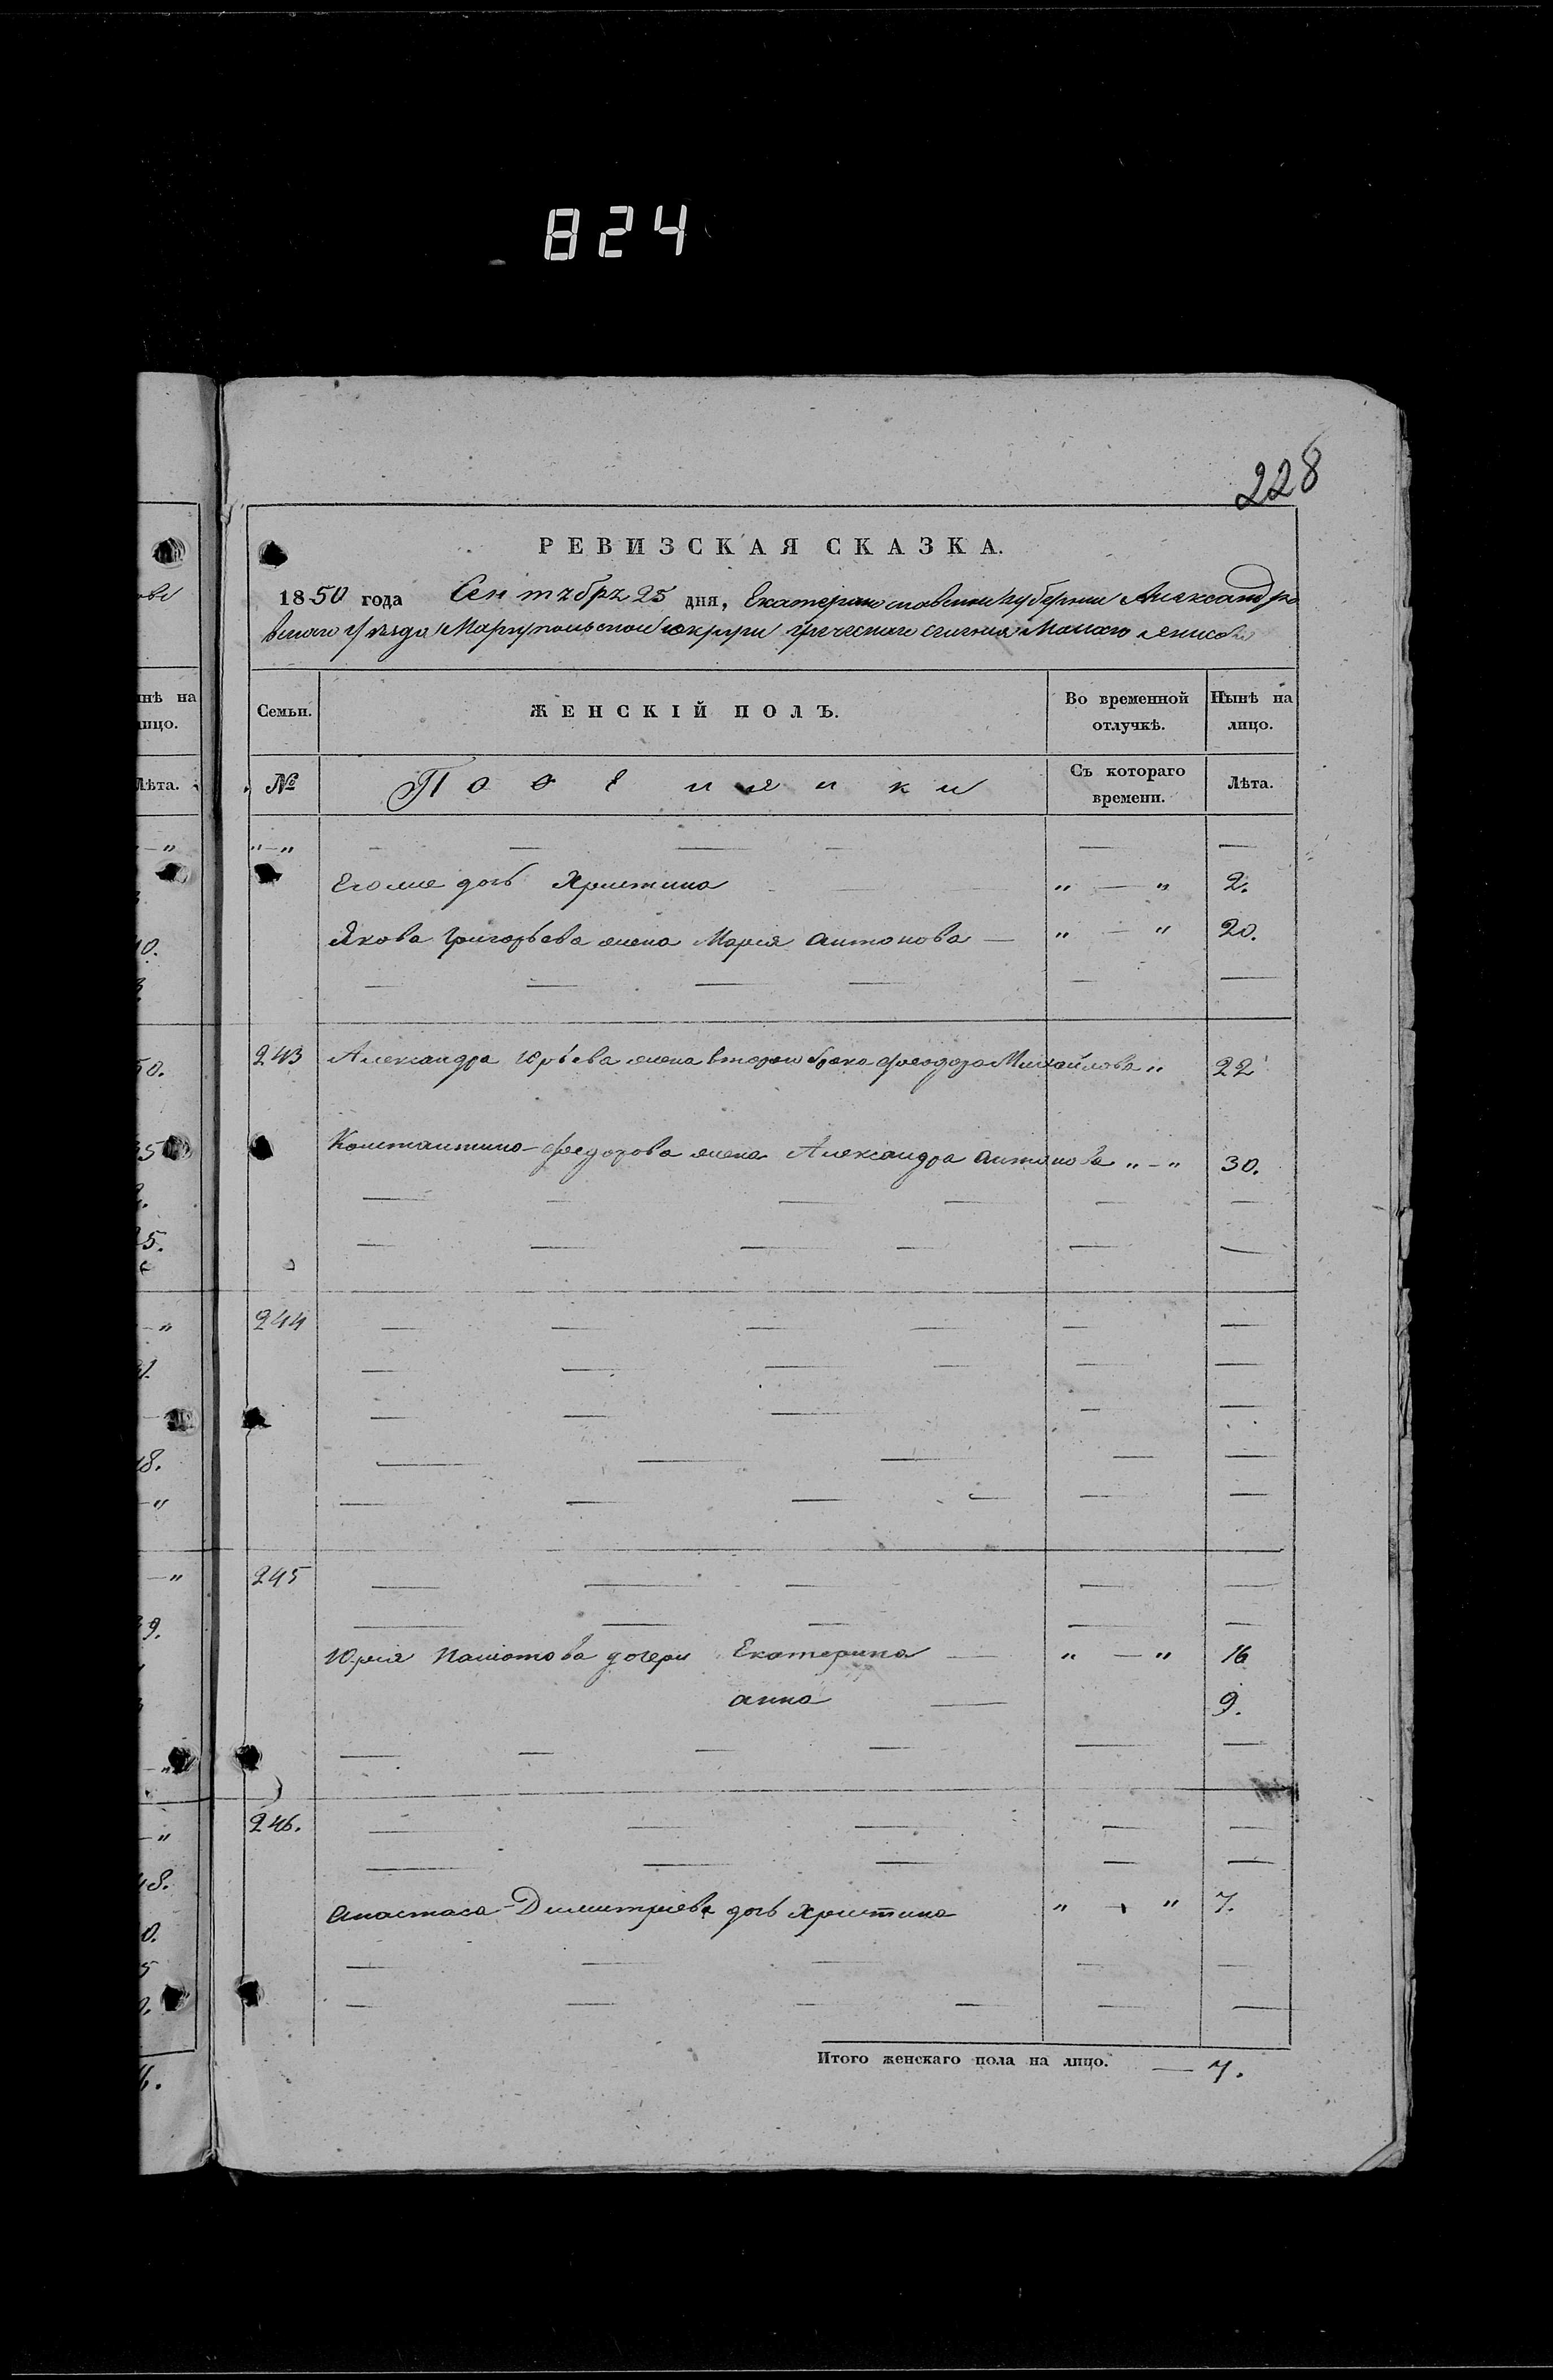 824
228
РЕВИЗСКАЯ СКАЗКА.
1850 года Сентября 25 дня, Екатеринославской Губернии Александро
вскаго Уѣзда Мариупольской округи греческаго селения Малаго Янисоля
Семьи. ЖЕНСКІЙ ПОЛЪ. Во временной отлучкѣ. Нынѣ на лицо.
№ Поселянки Съ котораго времени. Лѣта.
„ — „ — — — — — —
Егоже дочь Христина „ — „ 2.
Якова Григорьева жена Мария Антонова — „ — „ 20.
— — — — — —
243 Александра Юрьева жена втораго брака Феодора Михайлова „ 22
Константина Федорова жена Александра Антонова „ - „ 30.
— — — — — —
— — — — — —
244 — — — — — —
— — — — — —
— — — — —
— — — — —
— — — — — —
245 — — — — —
— — — — —
Юрия дочери Екатерина — „ — „ 16
Анна — 9.
— — — — — —
246. — — — — —
— — — — —
Анастаса Димитриева дочь Христина „ — „ 7.
— — — — —
— — — — — —
Итого женскаго пола на лицо. — 7.